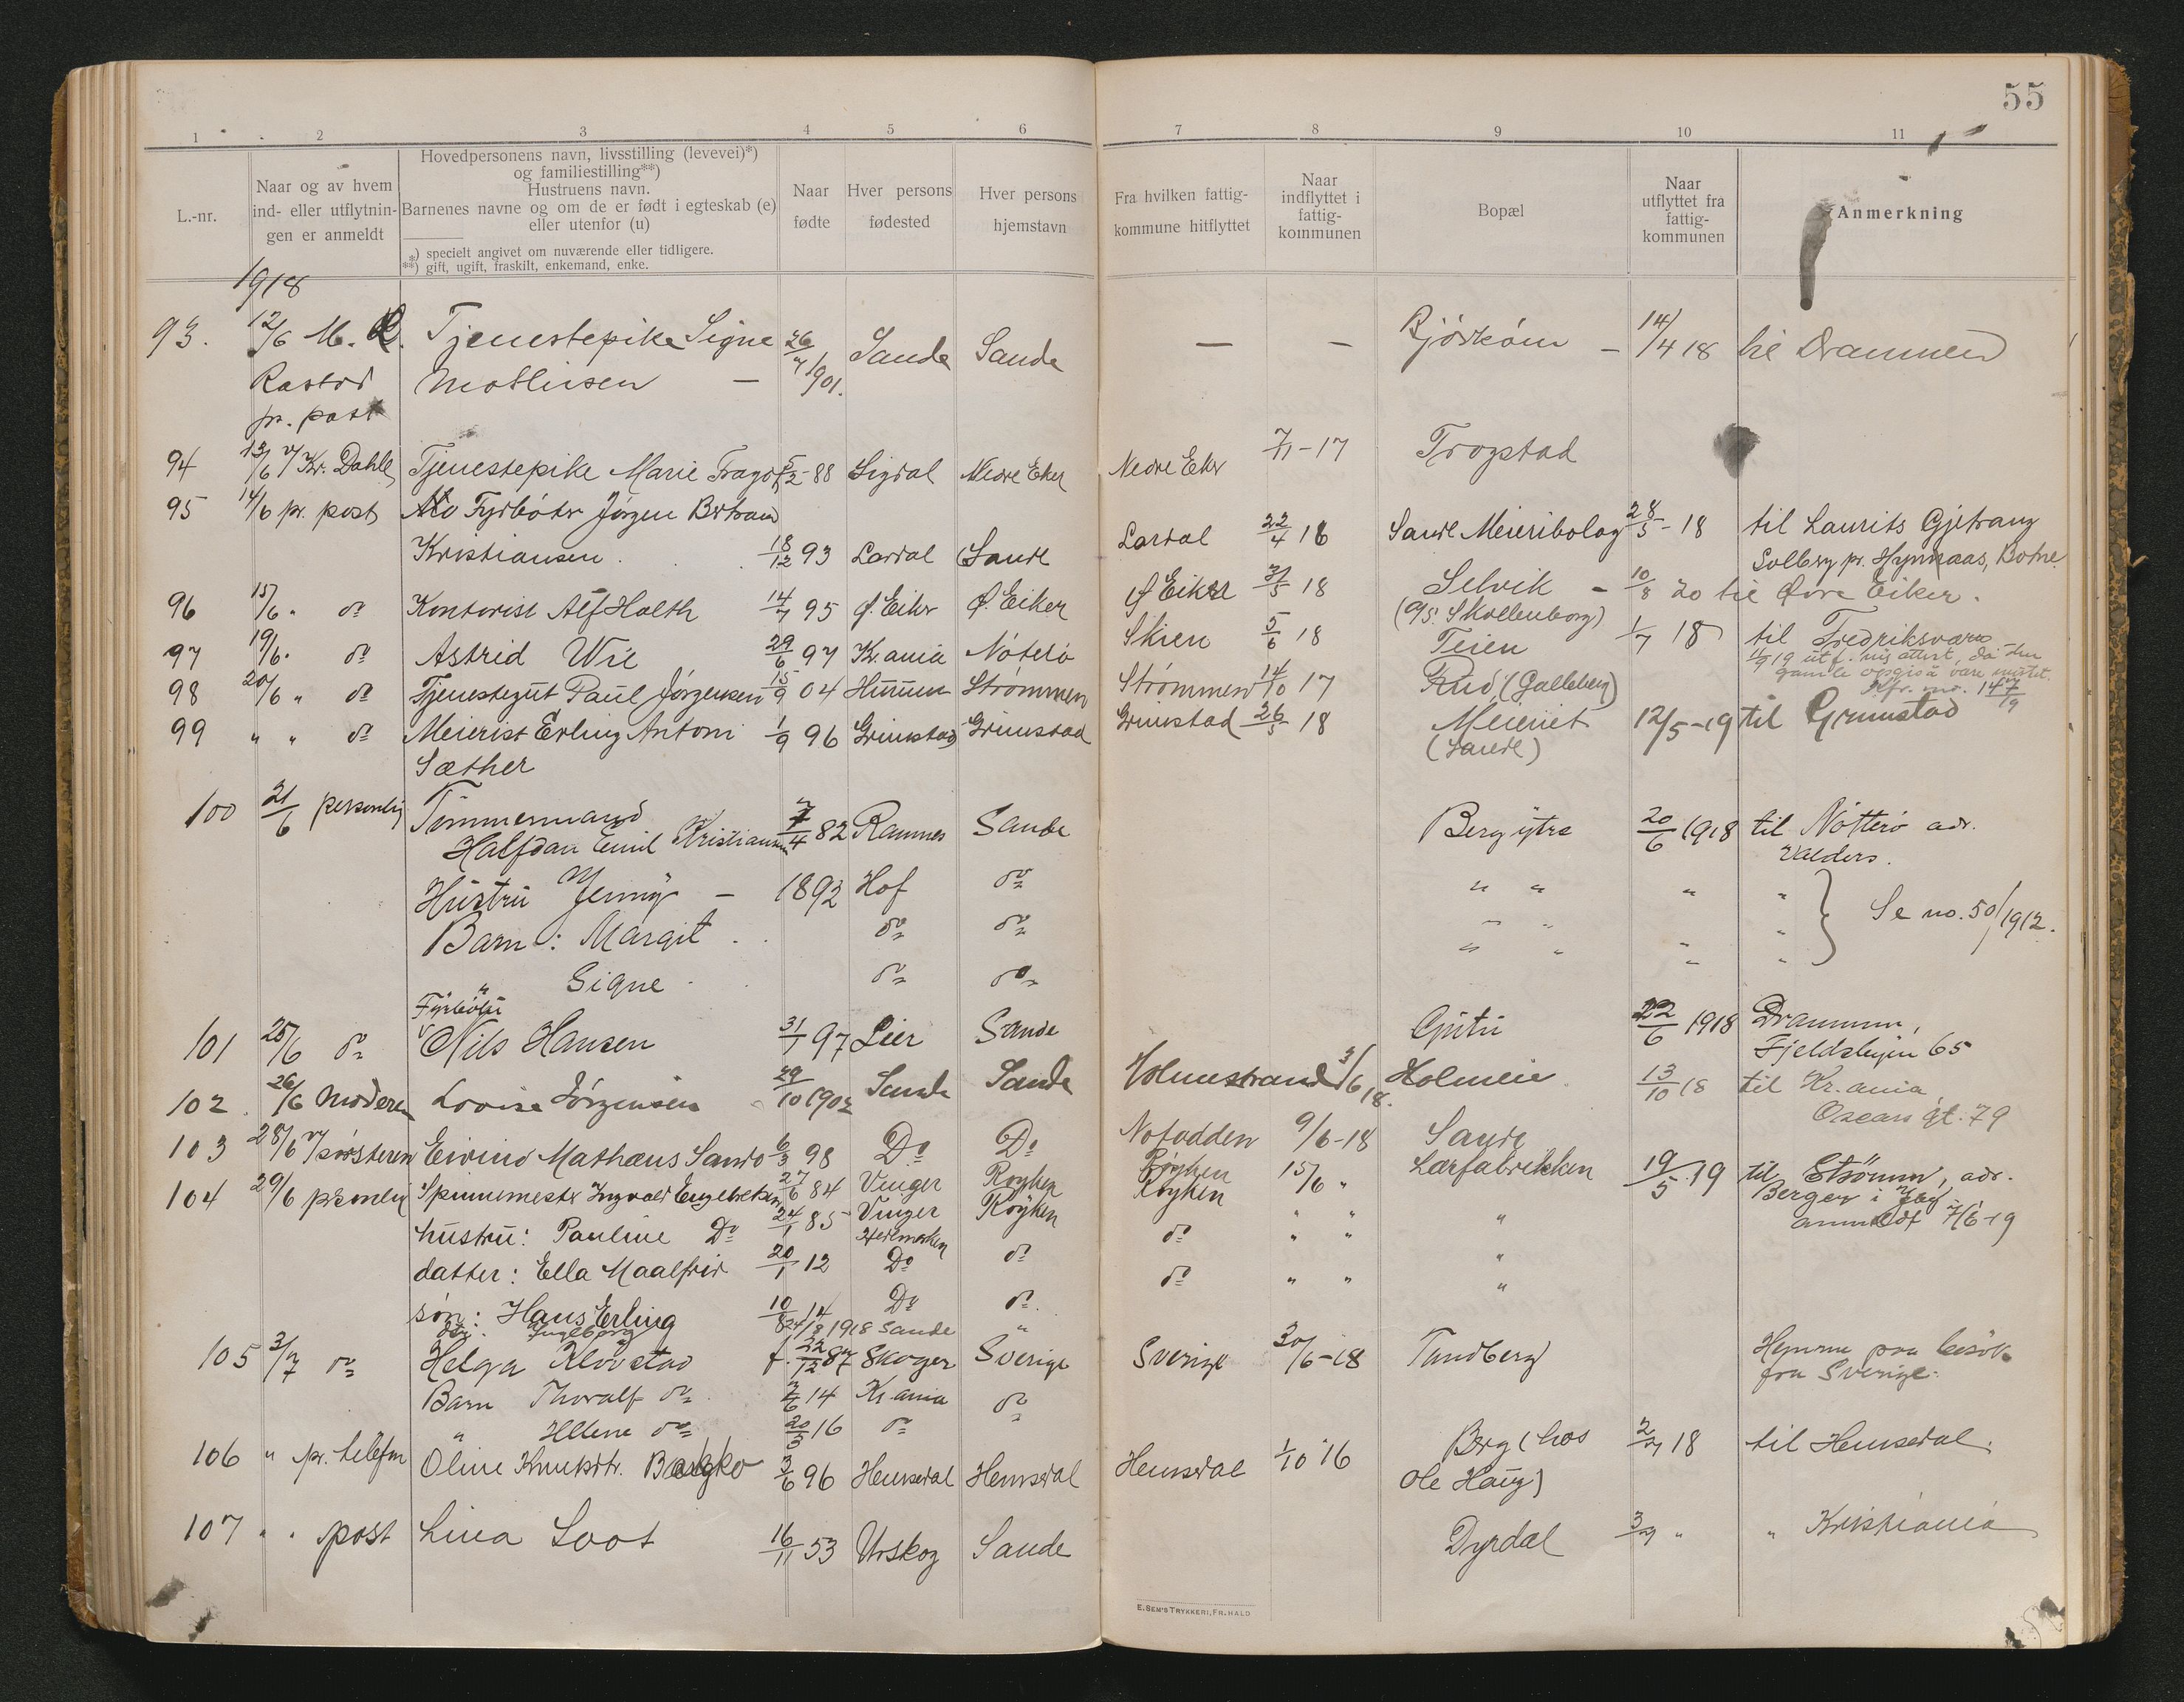 55
1 2 3 4 5 6 7 8 9 10 11
L.-nr.
Naar og av hvem
ind- eller utflytnin-
gen er anmeldt
Hovedpersonens navn, livsstilling (levevei)*)
og familiestilling**)
Hustruens navn.
Barnenes navne og om de er født i egteskab (e)
eller utenfor (u)
*) specielt angivet om nuværende eller tidligere.
**) gift, ugift, fraskilt, enkemand, enke.
Naar
fødte
Hver persons
fødested
Hver persons
hjemstavn
Fra hvilken fattig-
kommune hitflyttet
Naar
indflyttet i
fattig-
kommunen
Bopæl
Naar
utflyttet fra
fattig-
kommunen
Anmerkning
1918
93. 12/6 M. R. Tjenestepike Signe 26/4 1901. Sande Sande — — – 14/4 18 til Drammen
Rastad Mathisen —
pr. post
94 13/6 v/ Kr. Dahle Tjenestepike Marie 5/2-88 Sigdal Nedre Eker Nedre Eker 7/1-17 Trogstad
95 14/6 pr. post Fyrbøter Jørgen Bertrand
Kristiansen 18/12 93 Lardal Sande Lardal 22/4 18 Sande Meieribolag 28/5-18 til Laurits Gjetrang
Solberg pr. Hynnaas, Botne
96 15/6 " do Kontorist Alf Holth 14/7 95 Ø. Eiker Ø. Eiker Ø Eiker 31/5 18 Selvik – 10/8 20 til Øvre Eiker.
(A/S. Skollenborg)
97 19/6 " do Astrid Wie 29/6 97 Kr.ania Nøterø Skien 5/6 18 Teien 1/7 18 til Fredriksværn
98 20/6 " do Tjenestegut Paul Jørgensen 15/9 04 Hurum Strømmen Strømmen 14/10 17 Rud (Galleberg) 11/9 19 utf. ny attest, da den
gamle opgis å være mistet.
Kfr. no. 147/19
99 " " do Meierist Erling Antoni 1/9 96 Grimstad Grimstad Grimstad 26/5 18 Meieriet 12/5-19 til Grimstad
Sæther (Sande)
100 21/6 personlig Tømmermand
Halfdan Emil Kristiansen 7/4 82 Ramnes Sande Berg ytre 20/6 1918 til Nøtterø adr.
Valders.
Hustru Jenny — 1892 Hof do " " " "
Barn: Margit . . do do " " " " Se no. 50/1912.
" Signe . do do " " " "
Fyrbøter
101 25/6 do Nils Hansen 31/1 97 Lier Sande Gjetu 22/6 1918 Drammen,
Fjeldsbyen 65
102. 26/6 Moderen Lovise Jørgensen 29/10 1902 Sande Sande Holmestrand 3/6 18. Holmen 13/10 18 til Kr.ania
Oscars gt. 79
103 28/6 v/ søsteren Eivind Mathæus Sando 6/3 98 Do Do Notodden 9/6-18 Sande
104 29/6 personlig Spinnemester Ingvald Engebretsen 27/6 84 Vinger Røyken Røyken 15/6 " Lærfabrikken 19/5 19 til Strømm, adr.
Berger i
anmeldt 7/6-19
hustru: Pauline Do 24/1 85 Vinger Røyken Røyken " " "
Hedemarken
datter: Ella Maalfrid 20/1 12 Do do do " " "
søn: Hans Erling 10/8 14 Do do do " " "
dtr. Ingeborg 24/8 1918 Sande "
105 3/7 do Helga Klovstad f. 22/12 87 Skoger Sverige Sverige 30/6-18 Tandberg Hjemme paa besøk
fra Sverige.
Barn Thoralf do 7/6 14 Kr.ania do
" Hellene do 20/3 16 do
106 " pr. telefon Oline Knutsdtr. 3/6 96 Hemsedal Hemsedal Hemsedal 1/10 16 Berg (hos 2/7 18 til Hemsedal.
Ole Haug)
107 " " post Lina Soot 16/11 53 Urskog Sande Dyrdal 3/7 " " Kristiania
E. SEM'S TRYKKERI, FR.HALD